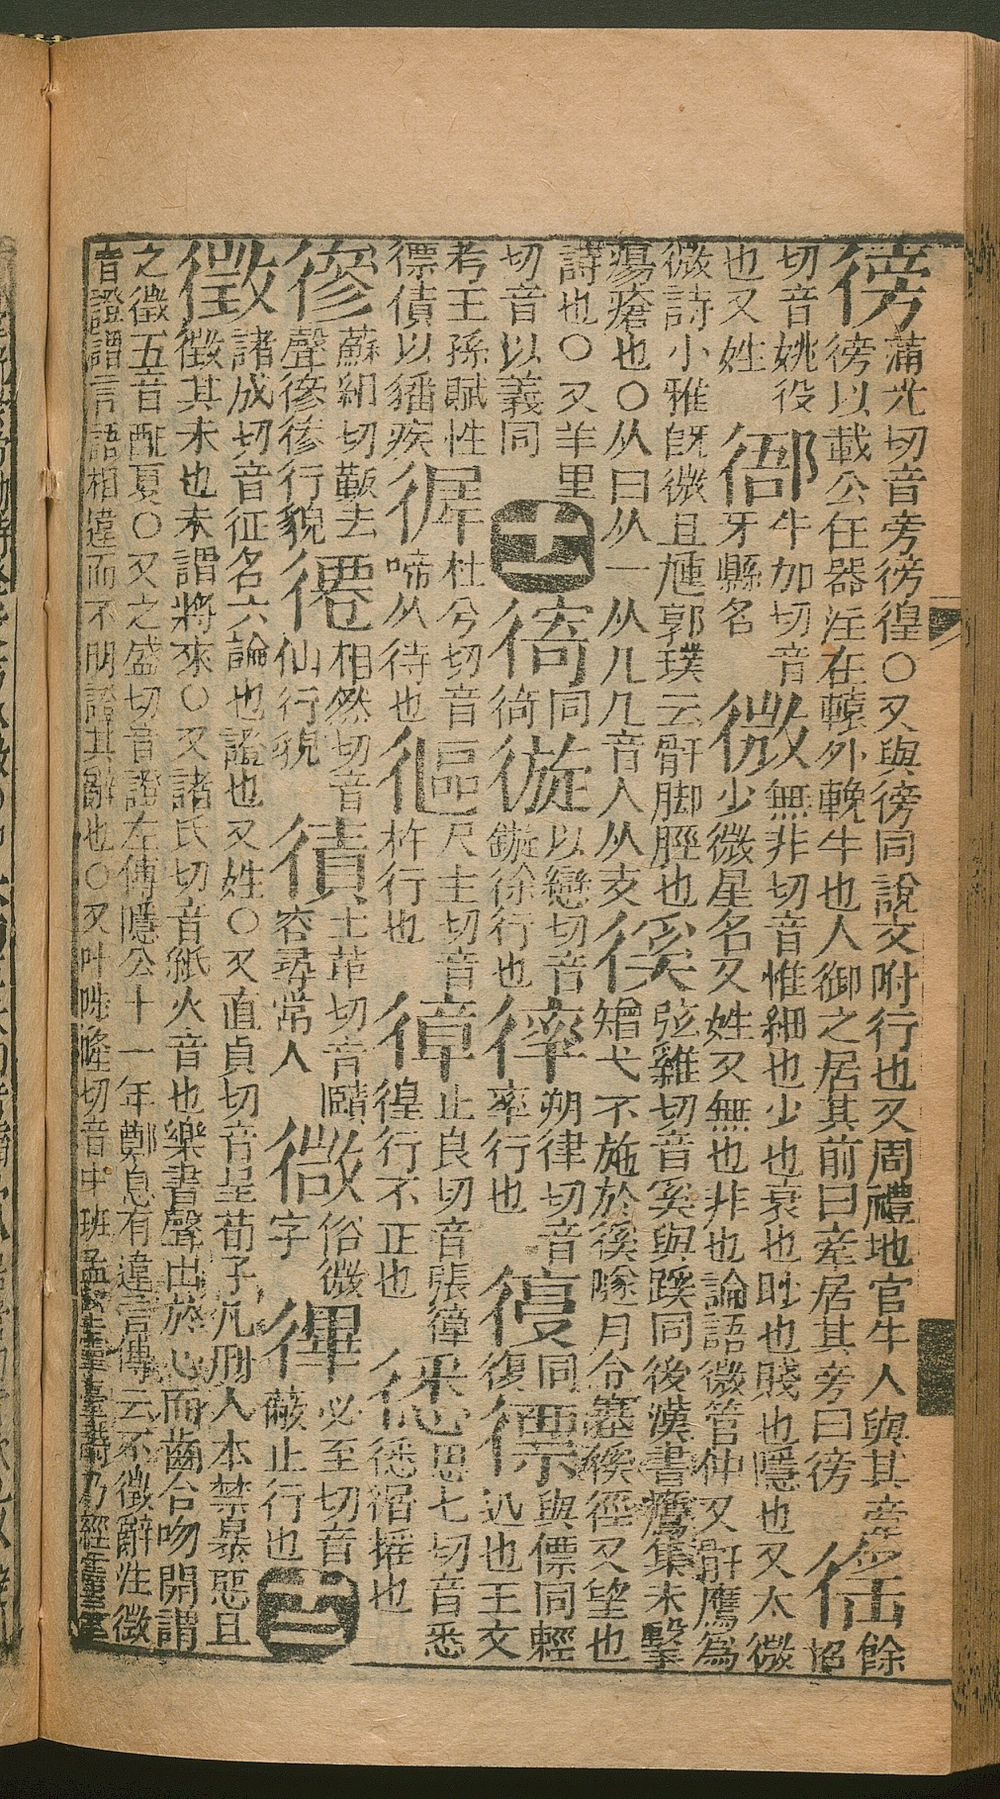 徬蒲光切音旁徬徨〇又與徬同說文附行也又周禮地官牛人與其牽
徬以載公任器注在轅外輓牛也人御之居其前曰牽居其旁曰徬徭餘招
切音姚役也又姓牛加切音牙縣名微無非切音惟細也少也衰也眇也賤也隱也又太微
少微星名又姓又無也非也論語微管仲又骭瘍為
微詩小雅旣微且尰郭璞云骭脚脛也
瘍瘡也〇从曰从一从几几音人从攴徯弦雞切音奚與蹊同後漢書鷹隼未擊
矰弋不施於徯隧月令塞徯徑又望也
詩也〇又羊里切音以義同十一徛同徛𢕐以戀切音鏇徐行也𢕅朔律切音率行也復同復徱與僄同輕迅也王文
考王孫賦性僄債以猵疾徲杜兮切音啼从待也𢕓尺主切音杵行也徫止良切音張徨行不正也思七切音悉搖也
𢕕蘇紺切歃去聲行貌僊相然切音仙行貌㣱士革切音賾容尋常人微俗微字㣶必至切音蔽止行也十二
徵諸成切音征名六論也證也又姓〇又直貞切音呈荀子凡刑人本禁暴惡且
徵其未也未謂將來〇又諸氏切音紙火音也樂書聲出於心而齒合吻開謂
之徵五音配夏〇又之盛切音證左傳隱公十一年鄭息有違言傳云不徵辭注徵
音證謂言語相違而不明證其辭也〇又叶切音中班孟堅靈臺詩乃經靈臺